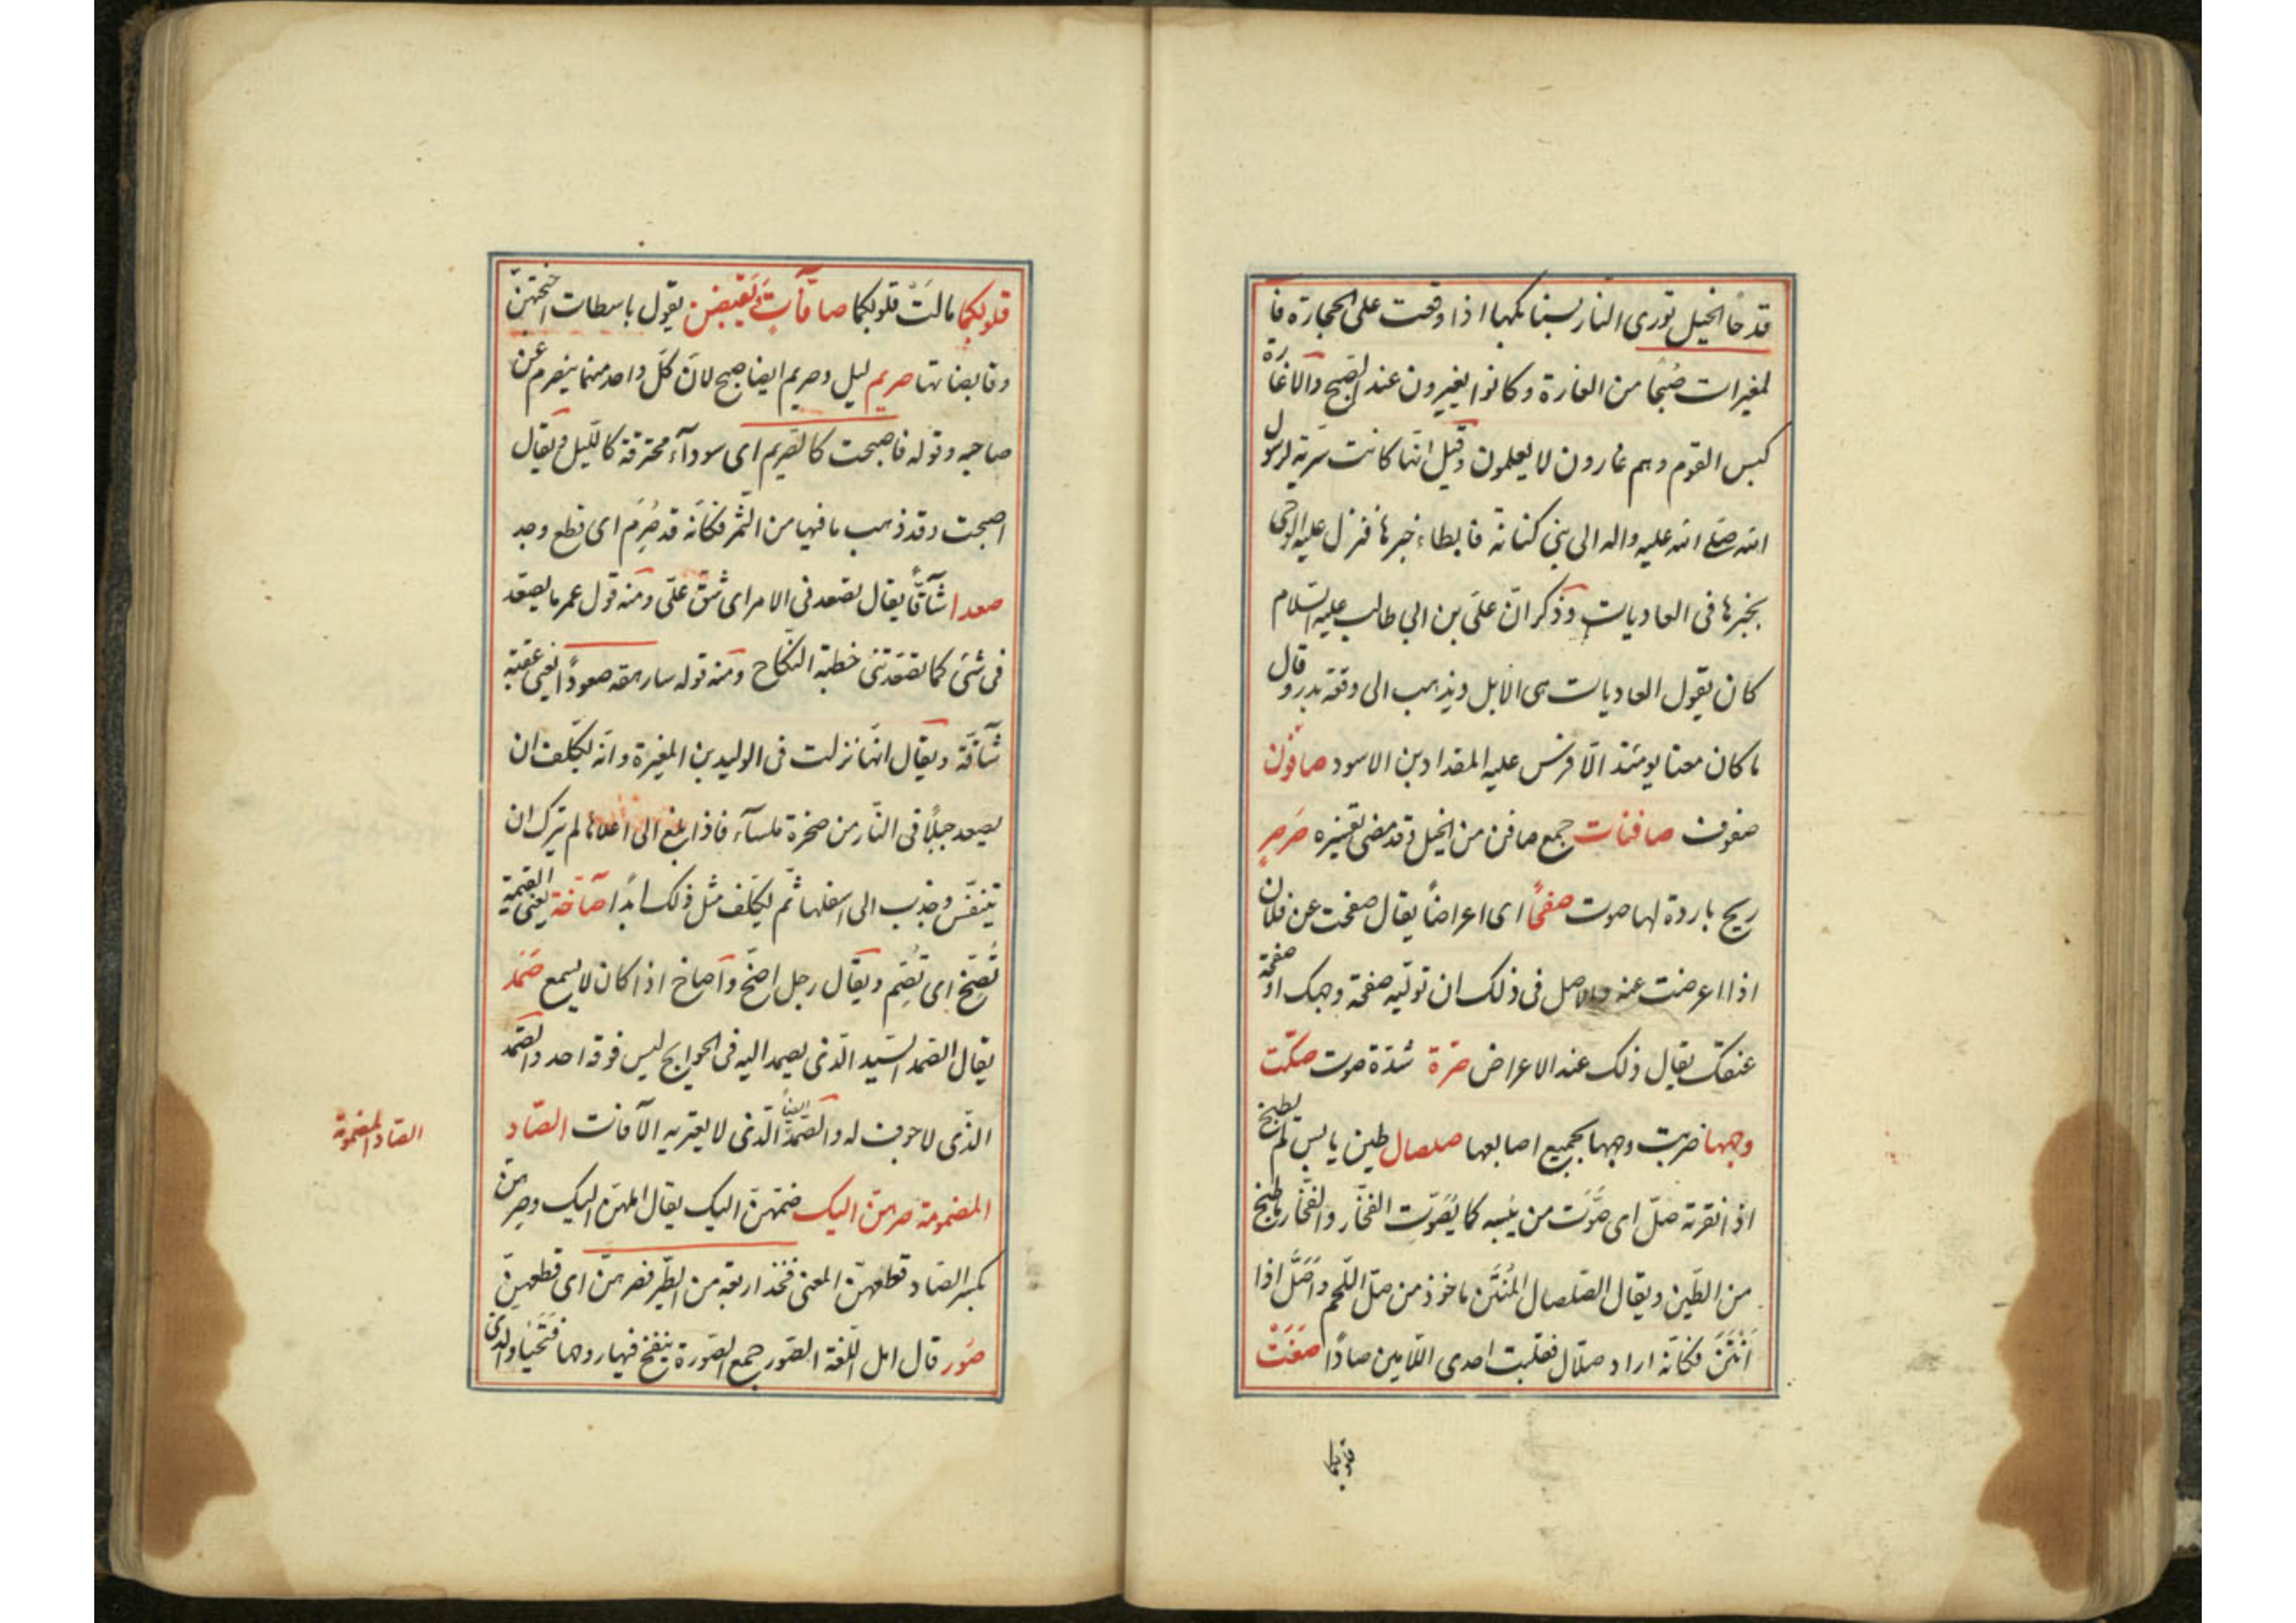 قدحًا الخيل تورى النار بسنابكها اذا وقعت على الحجارة فا
لمغيرات صُبحًا من الغارة وكانوا يغيرون عند الصبح والاغارة
كبس القوم وهم غارون لا يعلمون وقيل انّها كانت سريّة لرسول
الله صلى الله عليه واله الى بنى كنانة فابطاء خبرها فنزل عليه الوحى
بخبرها فى العاديات وذكر انّ علىّ بن ابى طالب عليه السّلام
كان يقول العاديات هى الابل ويذهب الى وقعة بدر وقال
ما كان معنا يومئذ الّا فرس عليه المقداد بن الاسود صافّون
صفوف صافنات جمع صافن من الخيل وقد مضى تفسيره صَرصرٍ
ريح باردة لها صوت صفحًا اى اعراضًا يقال صفحت عن فلان
اذا اعرضت عنه والاصل فى ذلك ان تولّيه صفحة وجهك او صفحة
عنقك يقال ذلك عند الاعراض صَرّة شدّة صوت صكّت
وجهها ضربت وجهها بجميع اصابعها صلصال طين يابس لم يطبخ
اذا نقرته صلّ اى صَوَّتَ من يُبسه كما يُصَوِّت الفخّار والفخّار ما طبخ
من الطّين ويقال الصّلصال المُنتن ماخوذ من صلّ اللّحم واَصَلَّ اذا
اَنْتَنَ فكانّه اراد صلّال فقلبت احدى اللّامين صادًا صَغَتْ
قلوبكما
قلوبكما مالَتْ قلوبكما صافّاتٍ وَيَقبضن يقول باسطات اجنحتهنّ
وقابضاتها صريم ليل وصريم ايضا صبح لانّ كلّ واحد منهما ينصرم عن
صاحبه وقوله فاصبحت كالصّريم اى سودآء محترقة كاللّيل ويقال
اصبحت وقد ذهب ما فيها من الثّمر فكانّه قد صُرِمَ اى قطع وجد
صعدا شآقّاً يقال تصعد فى الامر اى شقّ علىّ ومنه قول عمر ما يصعّد
فى شئ كما تصعّدتنى خطبة النّكاح ومنه قوله سارهقه صعودًا يعنى عقبة
شآقّة ويقال انّها نزلت فى الوليد بن المغيرة وانّه يكلّف ان
يصعد جبلًا فى النّار من صخرة ملسآء فاذا بلغ الى اعلاها لم يترك ان
يتنفّس وجذب الى اسفلها ثمّ يكلّف مثل ذلك ابدًا صآخّة يعنى القيمة
تُصِخّ اى تُصِمّ ويقال رجل اصخّ واصاخ اذا كان لا يسمع صَمَد
يقال الصّمد السّيد الّذى يصمد اليه فى الحوايج ليس فوقه احد والصّمد
الّذى لا جوف له والصّمد ايضاً الّذى لا يعتريه الآفات الصّاد
المضمومة صرهنّ اليك ضمّهنّ اليك يقال املهنّ اليك وصِرهنّ
بكسر الصّاد قطعهنّ المعنى فخذ اربعة من الطّير فصرهنّ اى قطعهنّ
صُور قال اهل اللّغة الصّور جمع الصّورة ينفخ فيها روحها فَتَحْيَا والّذى
الصّاد المضمومة